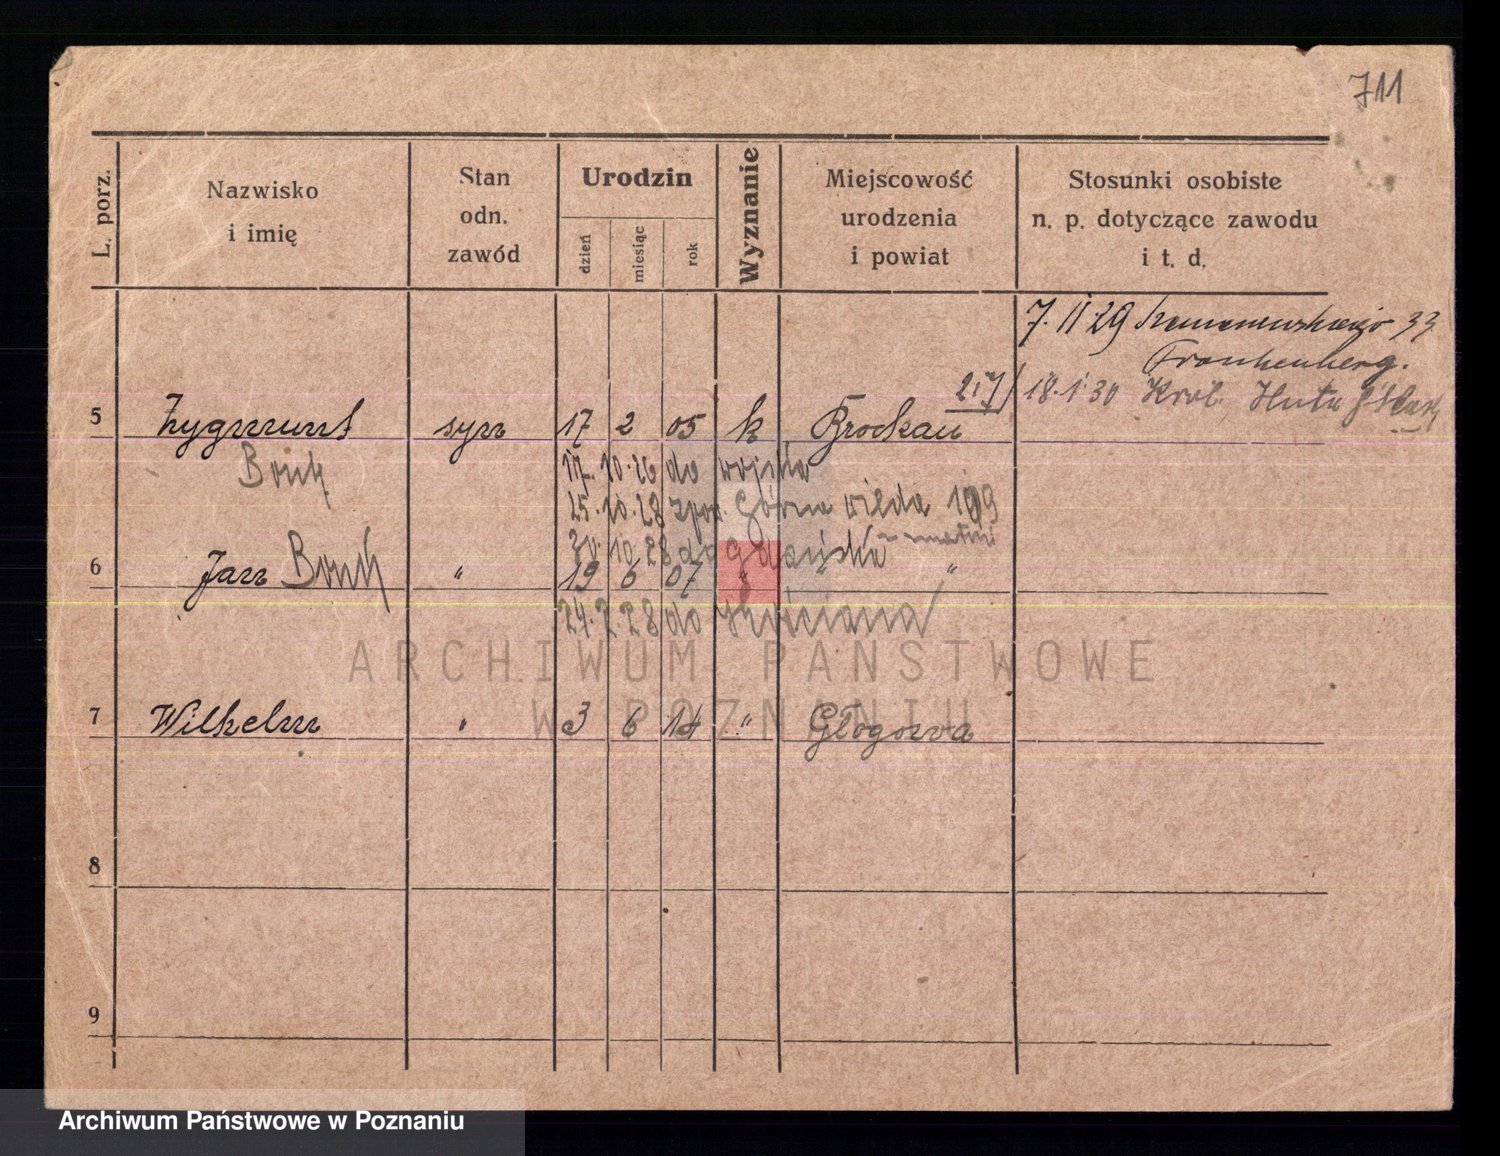 711
L. porz.
Nazwisko
i imię
Stan
odn.
zawód
Urodzin
dzień
miesiąc
rok
Wyznanie
Miejscowość
urodzenia
i powiat
Stosunki osobiste
n. p. dotyczące zawodu
i t. d.
7. 11 29 33
Frankenberg.
18. 1. 30 Król. Huta
5 Zygmunt syn 17 2 05 k Brockau
17. 10. 26 do wojska
25. 10. 28 Górna wilda 109
30. 10. 28
6 Jan " 19 6 07 " " "
24. 2. 28 do
7 Wilhelm " 3 6 14 " Głogowa
8
9
ARCHIWUM PAŃSTWOWE
W POZNANIU
Archiwum Państwowe w Poznaniu